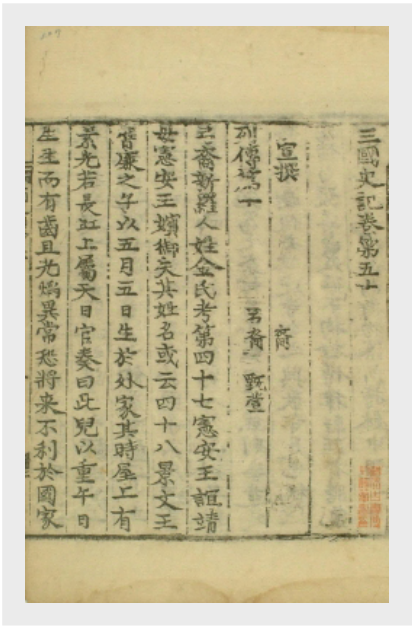 三國史記卷第五十
宣撰
列傳第十 弓裔 甄萱
弓裔新羅人姓金氏考第四十七憲安王誼靖
母憲安王嬪御失其姓名或云四十八景文王
膺廉之子以五月五日生於外家其時屋上有
素光若長虹上屬天日官奏曰此兒以重午日
生生而有齒且光焰異常恐將来不利於國家